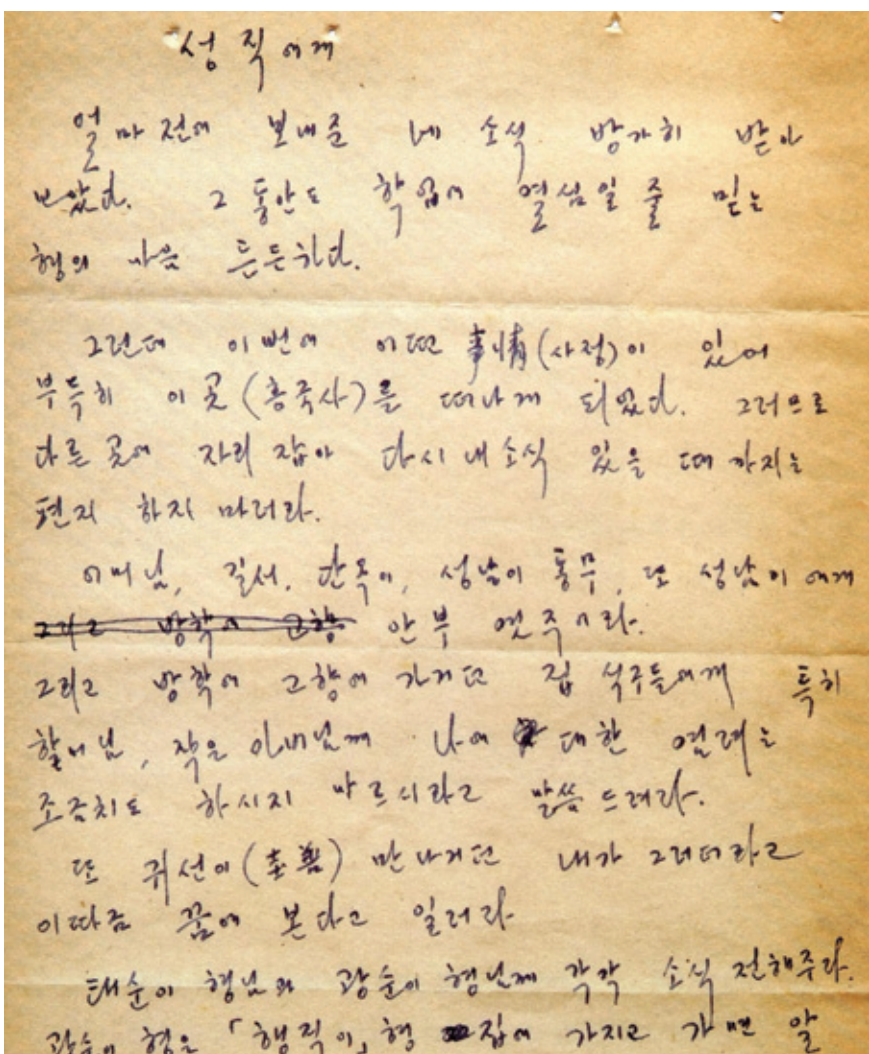 성직에게
얼마 전에 보내준 네 소식 방가히 받아
보았다. 그 동안도 학업에 열심일 줄 믿는
형의 마음 든든하다.
그런데 이번에 어떤 事情(사정)이 있어
부득히 이 곳(흥국사)를 떠나게 되었다. 그러므로
다른 곳에 자리 잡아 다시 내 소식 있을 때 까지는
편지 하지 마러라.
어머님, 길서, 단독이, 성남이 동무, 또 성남이에게
그리고 방학에 고향 안부 엿주어라.
그리고 방학에 고향에 가거던 집 식구들에게 특히
할머님, 작은 아버님께 나에 대한 염려는
조금치도 하시지 마르시라고 말씀 드려라.
또 귀선이( ) 만나거던 내가 그러더라고
이따금 꿈에 본다고 일러라
태순이 형님과 광순이 형님께 각각 소식 전해주라.
광순이 형은 「행직이, 형 집에 가지고 가면 알